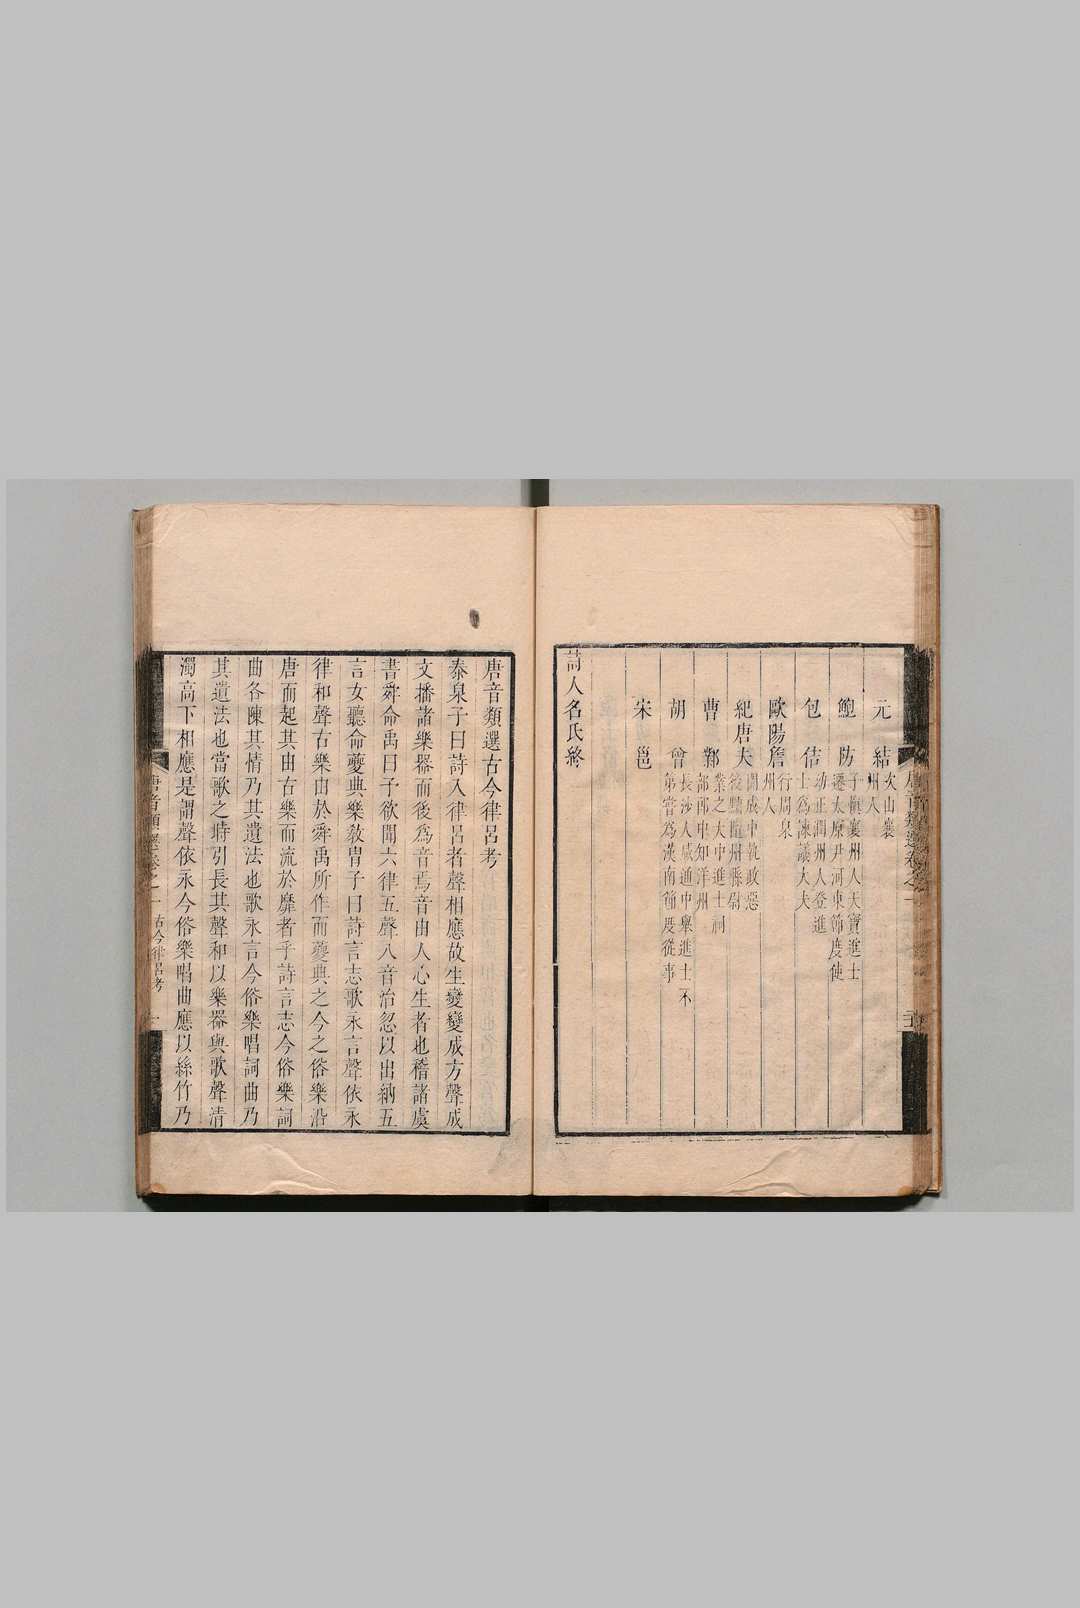 元結 次山襄
州人
鮑防 子愼襄州人天寶進士
遷太原尹河東節度使
包佶 幼正潤州人登進
士爲諫議大夫
歐陽詹 行周泉
州人
紀唐夫 開成中執政惡
後黜隨州縣尉
曹鄴 業之大中進士祠
部郎中知洋州
胡曾 長沙人咸通中舉進士不
第嘗爲漢南節度從事
宋邕
詩人名氏終
唐音類選古今律呂考
泰泉子曰詩入律呂者聲相應故生變變成方聲成
文播諸樂器而後爲音焉音由人心生者也稽諸虞
書舜命禹曰予欲聞六律五聲八音治忽以出納五
言女聽命夔典樂敎胄子曰詩言志歌永言聲依永
律和聲古樂由於舜禹所作而夔典之今之俗樂沿
唐而起其由古樂而流於靡者乎詩言志今俗樂詞
曲各陳其情乃其遺法也歌永言今俗樂唱詞曲乃
其遺法也當歌之時引長其聲和以樂器與歌聲淸
濁高下相應是謂聲依永今俗樂唱曲應以絲竹乃
唐音類選卷之一 古今律呂考 一